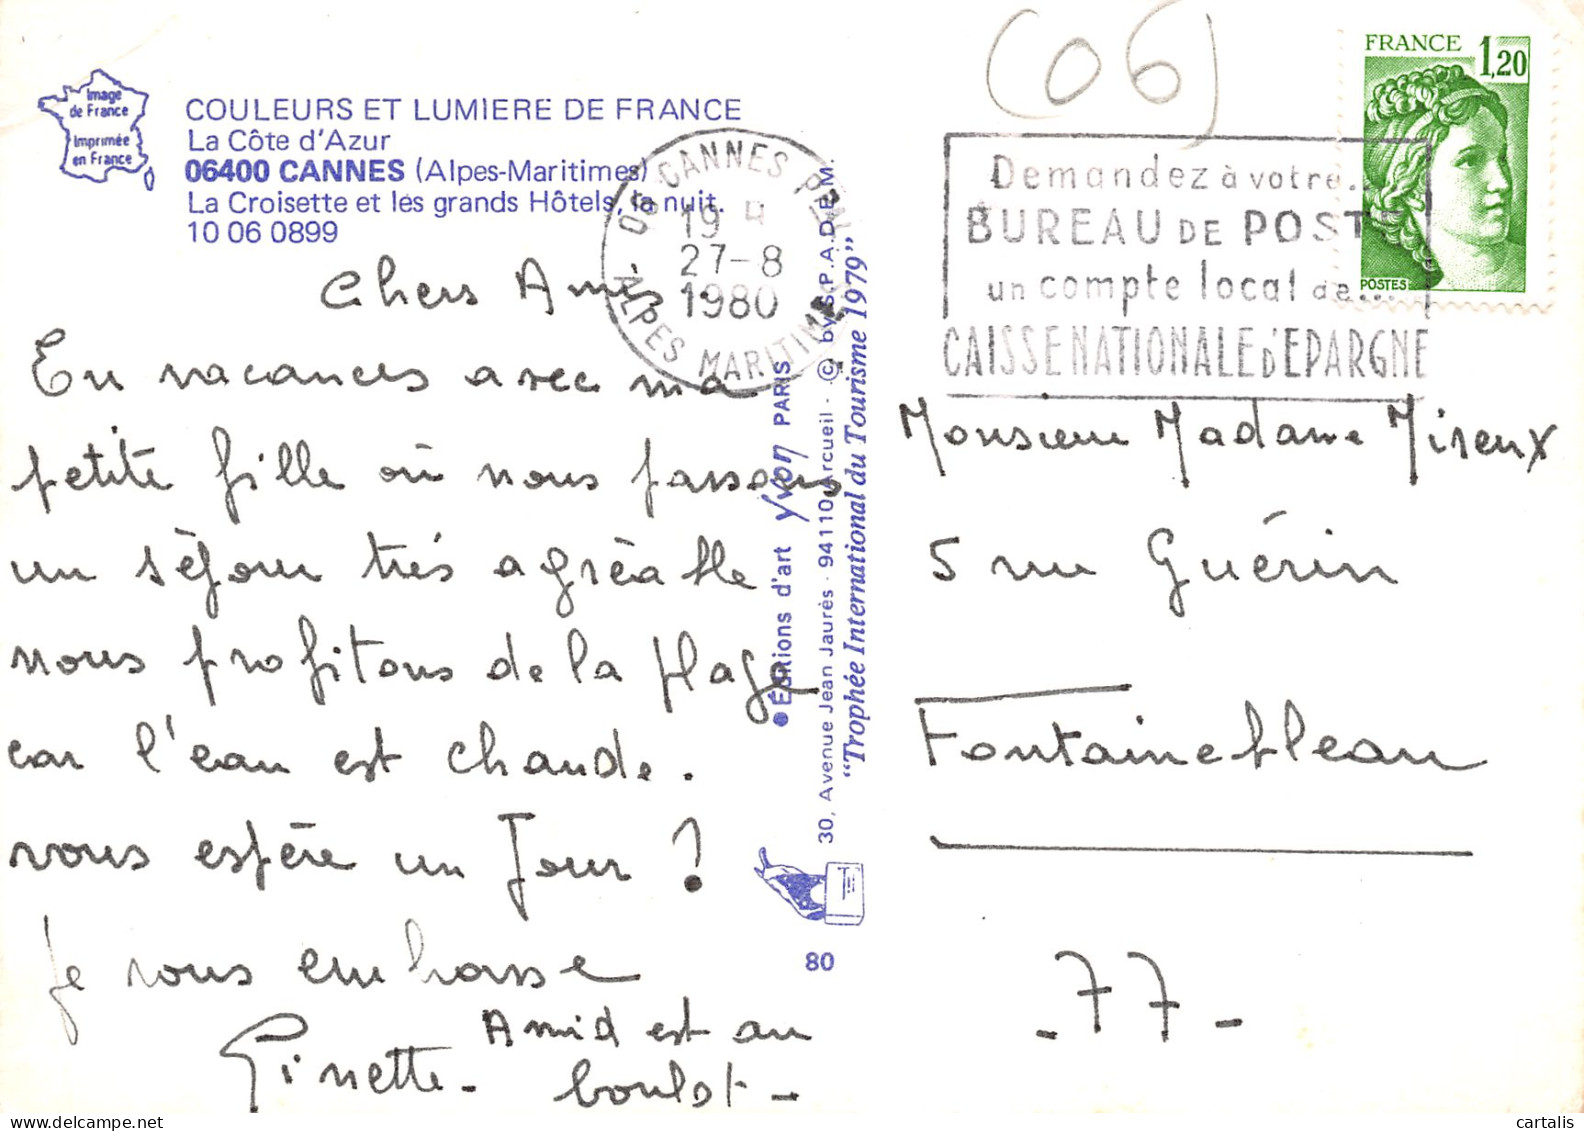 Image
de France
Imprimée
en France
COULEURS ET LUMIERE DE FRANCE
La Côte d'Azur
06400 CANNES (Alpes-Maritimes)
La Croisette et les grands Hôtels, la nuit.
10 06 0899
Chers Amis
En vacances avec ma
petite fille où nous passons
un séjour très agréable
nous profitons de la plage
car l'eau est chaude.
vous espère un Jour ?
Je vous embrasse
Ginette -
Amid est au
boulot -
06 CANNES
19 H
27-8
1980
ALPES MARITIMES
●Éditions d'art Yvon PARIS
30, Avenue Jean Jaurès - 94110 Arcueil - © by S.P.A.D.E.M.
"Trophée International du Tourisme 1979"
80
(06)
FRANCE 1,20
POSTES
Demandez à votre...
BUREAU DE POSTE
un compte local de...
CAISSE NATIONALE D'EPARGNE
Monsieur Madame Mireux
5 rue Guérin
Fontainebleau
- 77 -
www.delcampe.net
cartalis